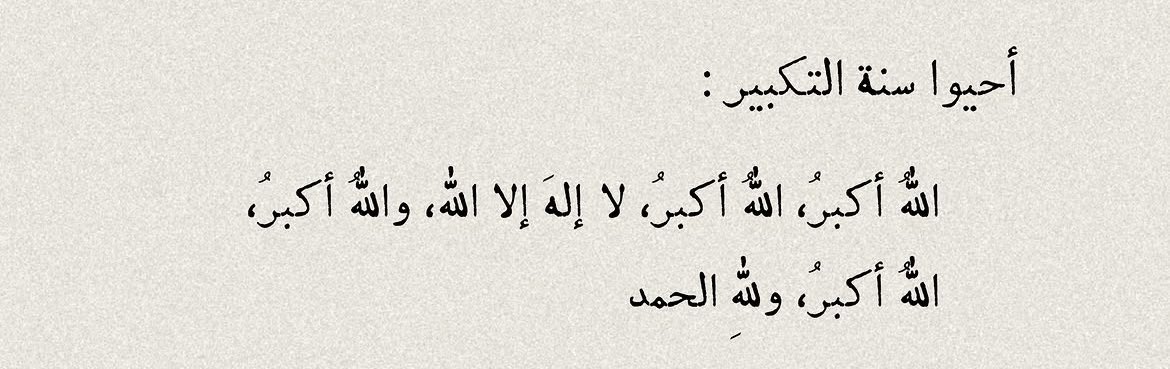 أحيوا سنة التكبير :
اللهُ أكبرُ، اللهُ أكبرُ، لا إلهَ إلا الله، واللهُ أكبرُ،
اللهُ أكبرُ، وللهِ الحمد